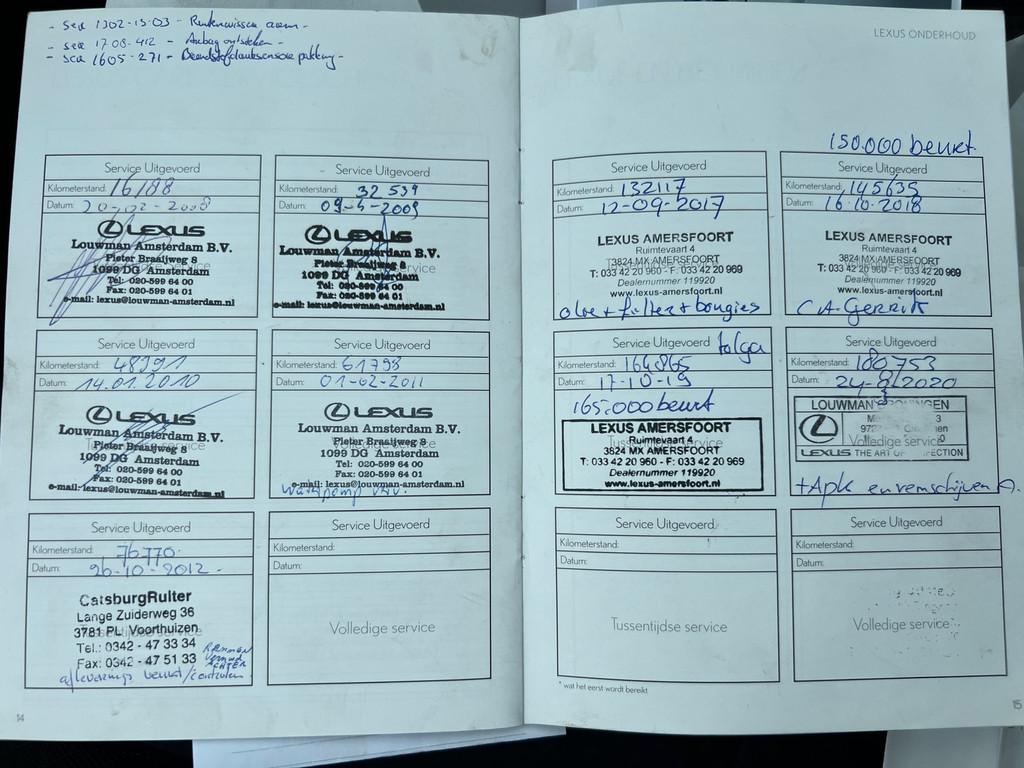 - sca 1302-15-03 - Ruitenwissen arm -
- sca 1708-412 - Airbag ontsteken -
- sca 1605-271 - Brandstofdruksensor pakking -
LEXUS ONDERHOUD
Service Uitgevoerd
Kilometerstand: 16188
Datum: 20-02-2008
LEXUS
Louwman Amsterdam B.V.
Pieter Braaijweg 8
1099 DG Amsterdam
Tel: 020-599 64 00
Fax: 020-599 64 01
e-mail: lexus@louwman-amsterdam.nl
Service Uitgevoerd
Kilometerstand: 32 539
Datum:
LEXUS
Louwman Amsterdam B.V.
Pieter Braaijweg 8
1099 DG Amsterdam
Tel: 020-599 64 00
Fax: 020-599 64 01
e-mail: lexus@louwman-amsterdam.nl
Service Uitgevoerd
Kilometerstand: 48391
Datum: 14.01.2010
LEXUS
Louwman Amsterdam B.V.
Pieter Braaijweg 8
1099 DG Amsterdam
Tel: 020-599 64 00
Fax: 020-599 64 01
e-mail: lexus@louwman-amsterdam.nl
Service Uitgevoerd
Kilometerstand: 61798
Datum: 01-02-2011
LEXUS
Louwman Amsterdam B.V.
Pieter Braaijweg 8
1099 DG Amsterdam
Tel: 020-599 64 00
Fax: 020-599 64 01
e-mail: lexus@louwman-amsterdam.nl
Waterpomp
Service Uitgevoerd
Kilometerstand: 76770.
Datum: 26-10-2012.-
CatsburgRuiter
Lange Zuiderweg 36
3781 PL Voorthuizen
Tussentijdse service
Tel.: 0342 - 47 33 34
Fax: 0342 - 47 51 33
afleverings beurt/controlen
Service Uitgevoerd
Kilometerstand:
Datum:
Volledige service
14
Service Uitgevoerd
Kilometerstand: 132117
Datum: 12-09-2017
LEXUS AMERSFOORT
Ruimtevaart 4
3824 MX AMERSFOORT
T: 033 42 20 960 - F: 033 42 20 969
Dealernummer 119920
www.lexus-amersfoort.nl
olie + filter + bougies
150.000 beurt
Service Uitgevoerd
Kilometerstand: 145635
Datum: 16-10-2018
LEXUS AMERSFOORT
Ruimtevaart 4
3824 MX AMERSFOORT
T: 033 42 20 960 - F: 033 42 20 969
Dealernummer 119920
www.lexus-amersfoort.nl
Gerrit
Service Uitgevoerd tolga
Kilometerstand: 164865
Datum: 17-10-19
165.000 beurt
LEXUS AMERSFOORT
Ruimtevaart 4
Tussentijdse service
3824 MX AMERSFOORT
T: 033 42 20 960 - F: 033 42 20 969
Dealernummer 119920
www.lexus-amersfoort.nl
Service Uitgevoerd
Kilometerstand: 180753
Datum: 24-8-2020
LOUWMAN
Volledige service
LEXUS THE ART OF
+ Apk en remschijven
Service Uitgevoerd
Kilometerstand:
Datum:
Tussentijdse service
Service Uitgevoerd
Kilometerstand:
Datum:
Volledige service
* wat het eerst wordt bereikt
15